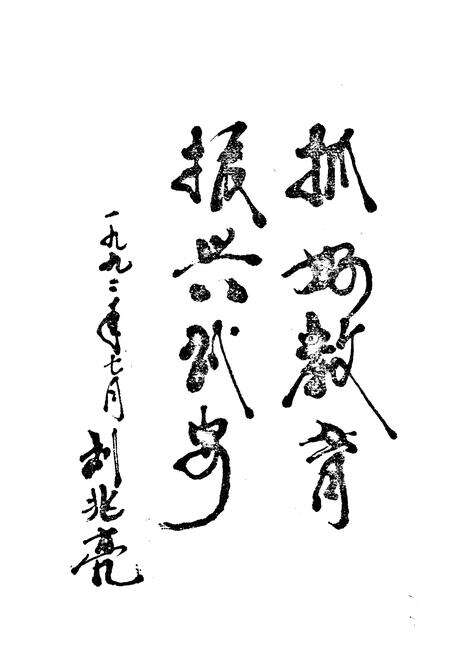 抓好教育
振兴武安
一九九二年七月
刘兆亮